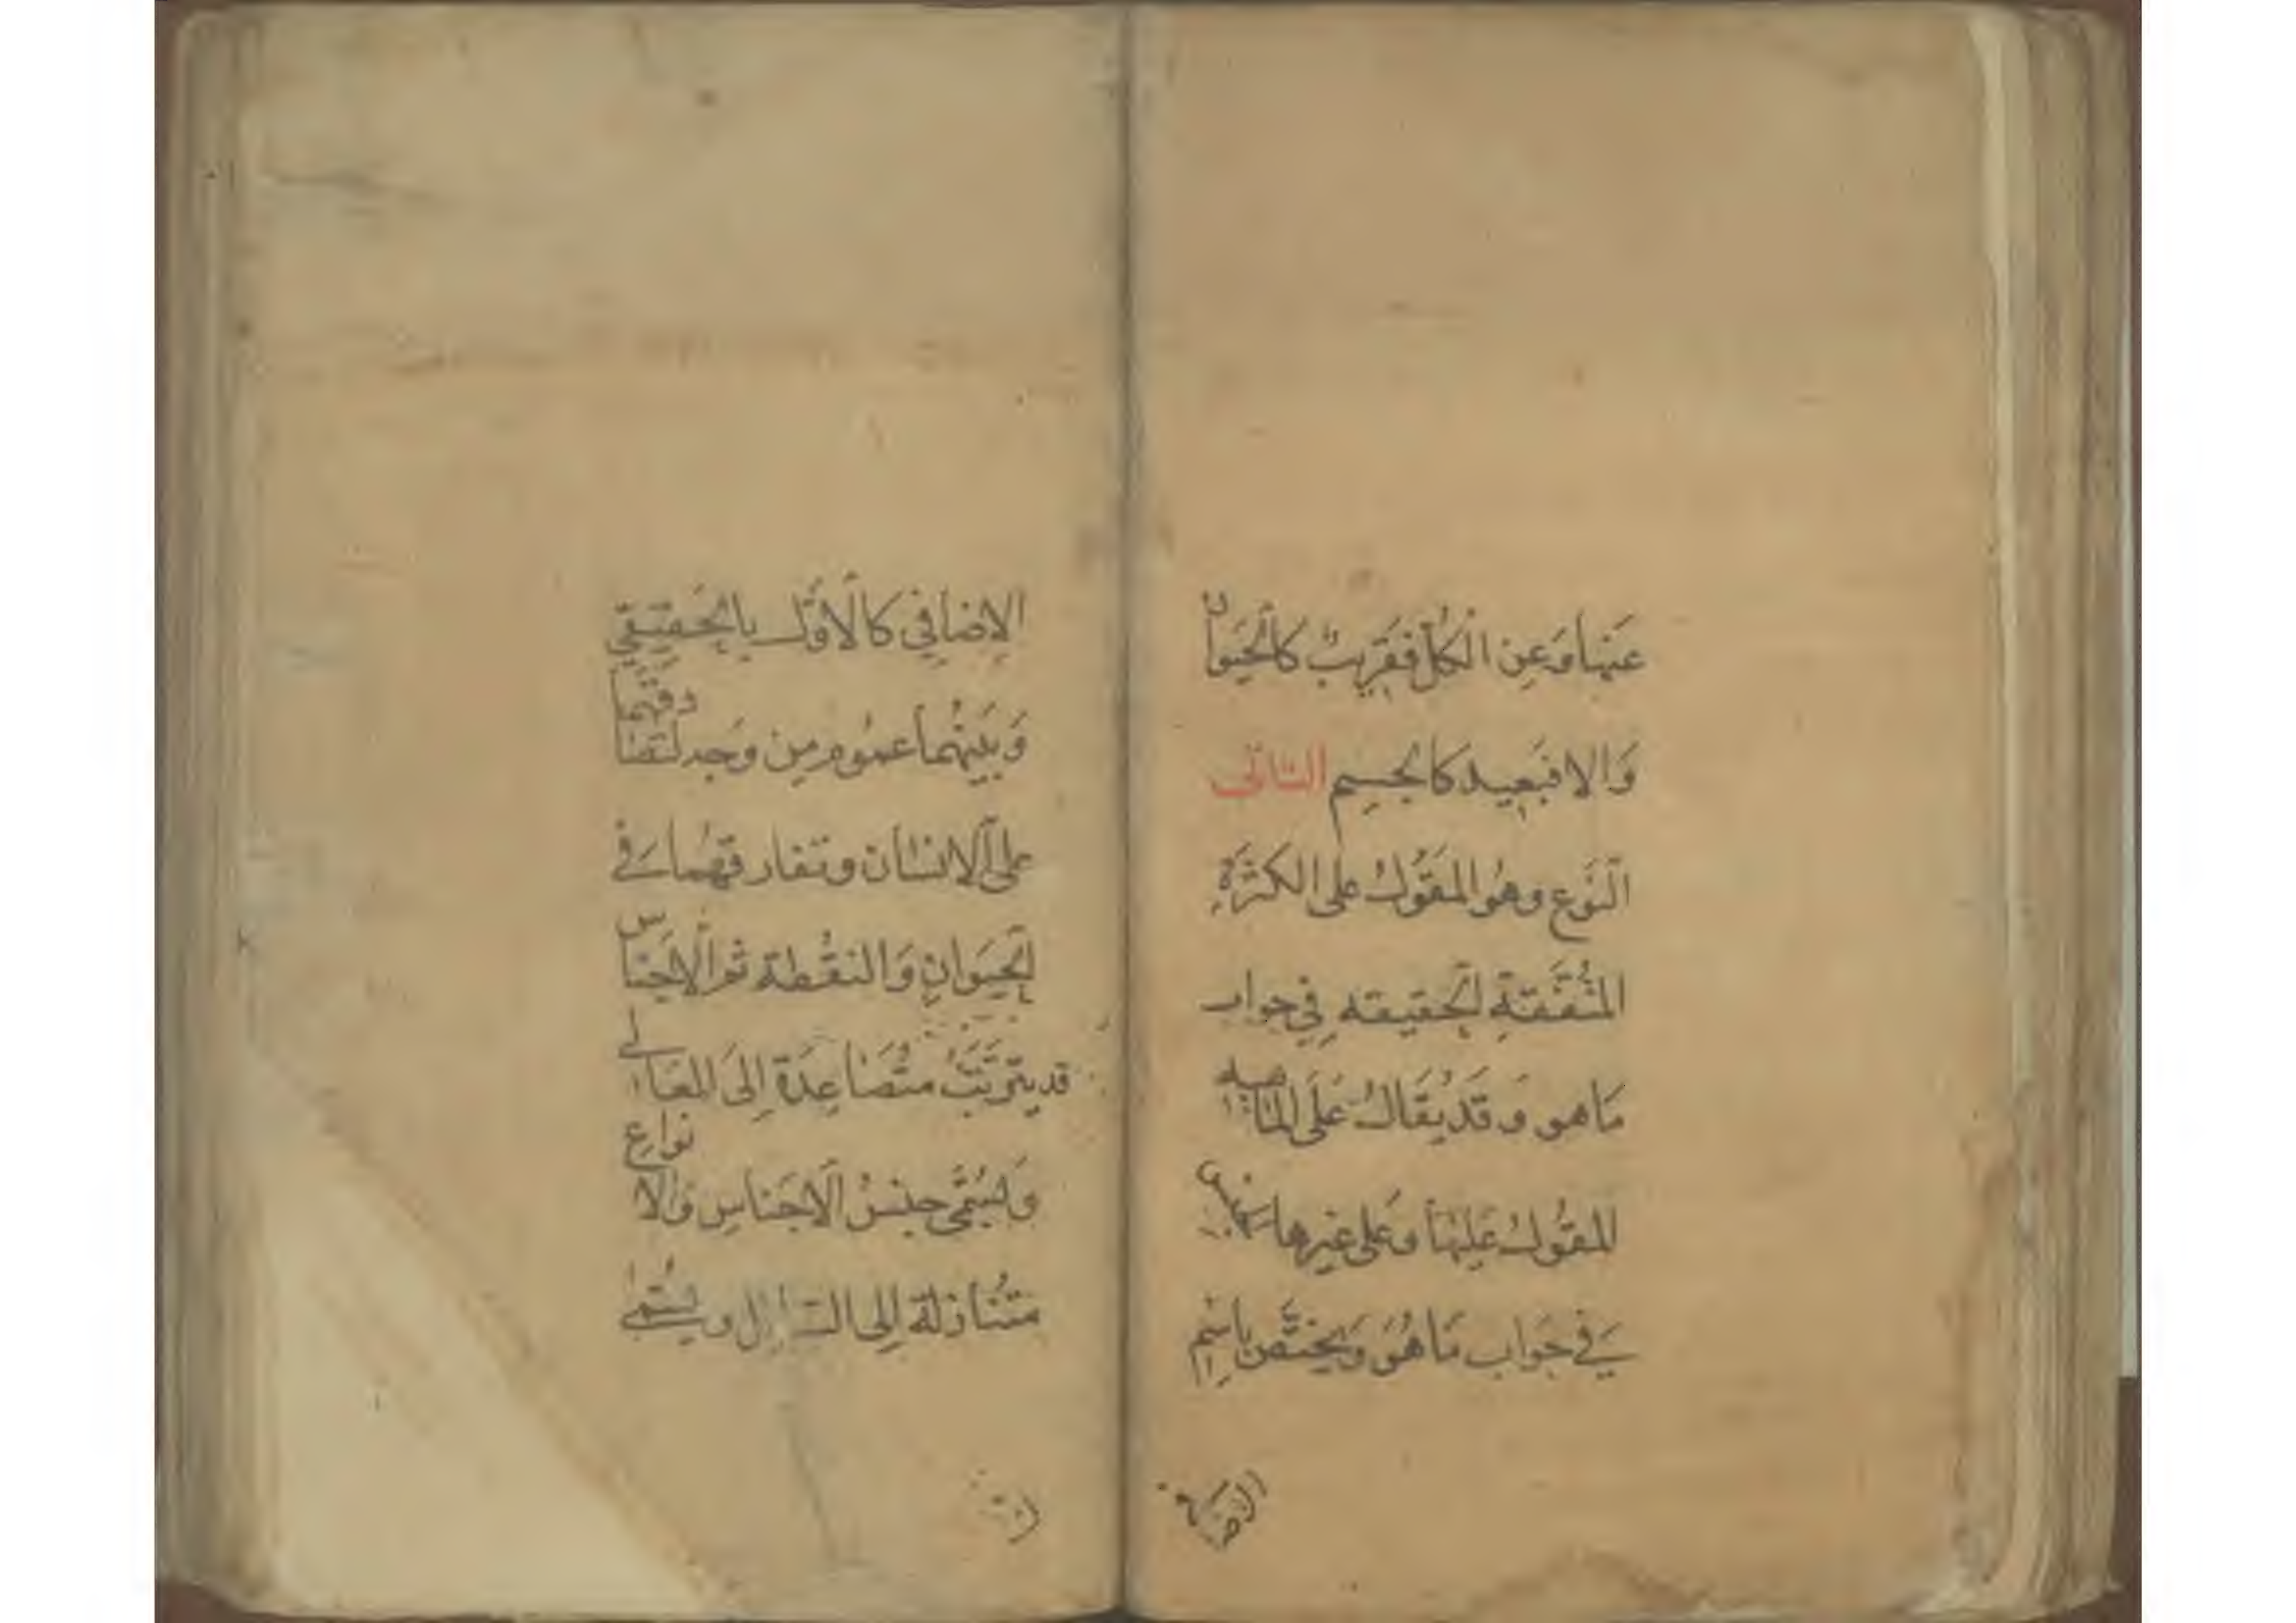 عَنهَا وَعَنِ الْكُلِّ فَقَرِيبٌ كَالْحَيَوانِ
وَالا فَبَعِيد كَالجسِمِ الثانى
النَّوعِ وهُو المَقُولُ على الكثرَةِ
المُتَّفِقَةِ الحقيقه فِي جواب
مَا هو وَقَد يُقَالُ عَلَى الماهيه
المقُولُ عَلَيهَا وعَلى غيرها الجنس
فے جَواب مَا هُوَ وَيَختَصُّ بِاسْمِ
الاضافي
الإضافِي كَالأوَّل بالحَقيقِي
وَبَينهُما عمُوم مِن وَجه لتصادقهما
على الانسان وتفارقهُما فے
الحَيَوانِ وَالنقُطة ثم الاجناس
قد يترتَّبُ متُصَاعِدَة إلى العالے
وَيسُمَّى جنسُ الاجنَاسِ وَالانواع
متنَازلة إلى السافل ويسُمّى